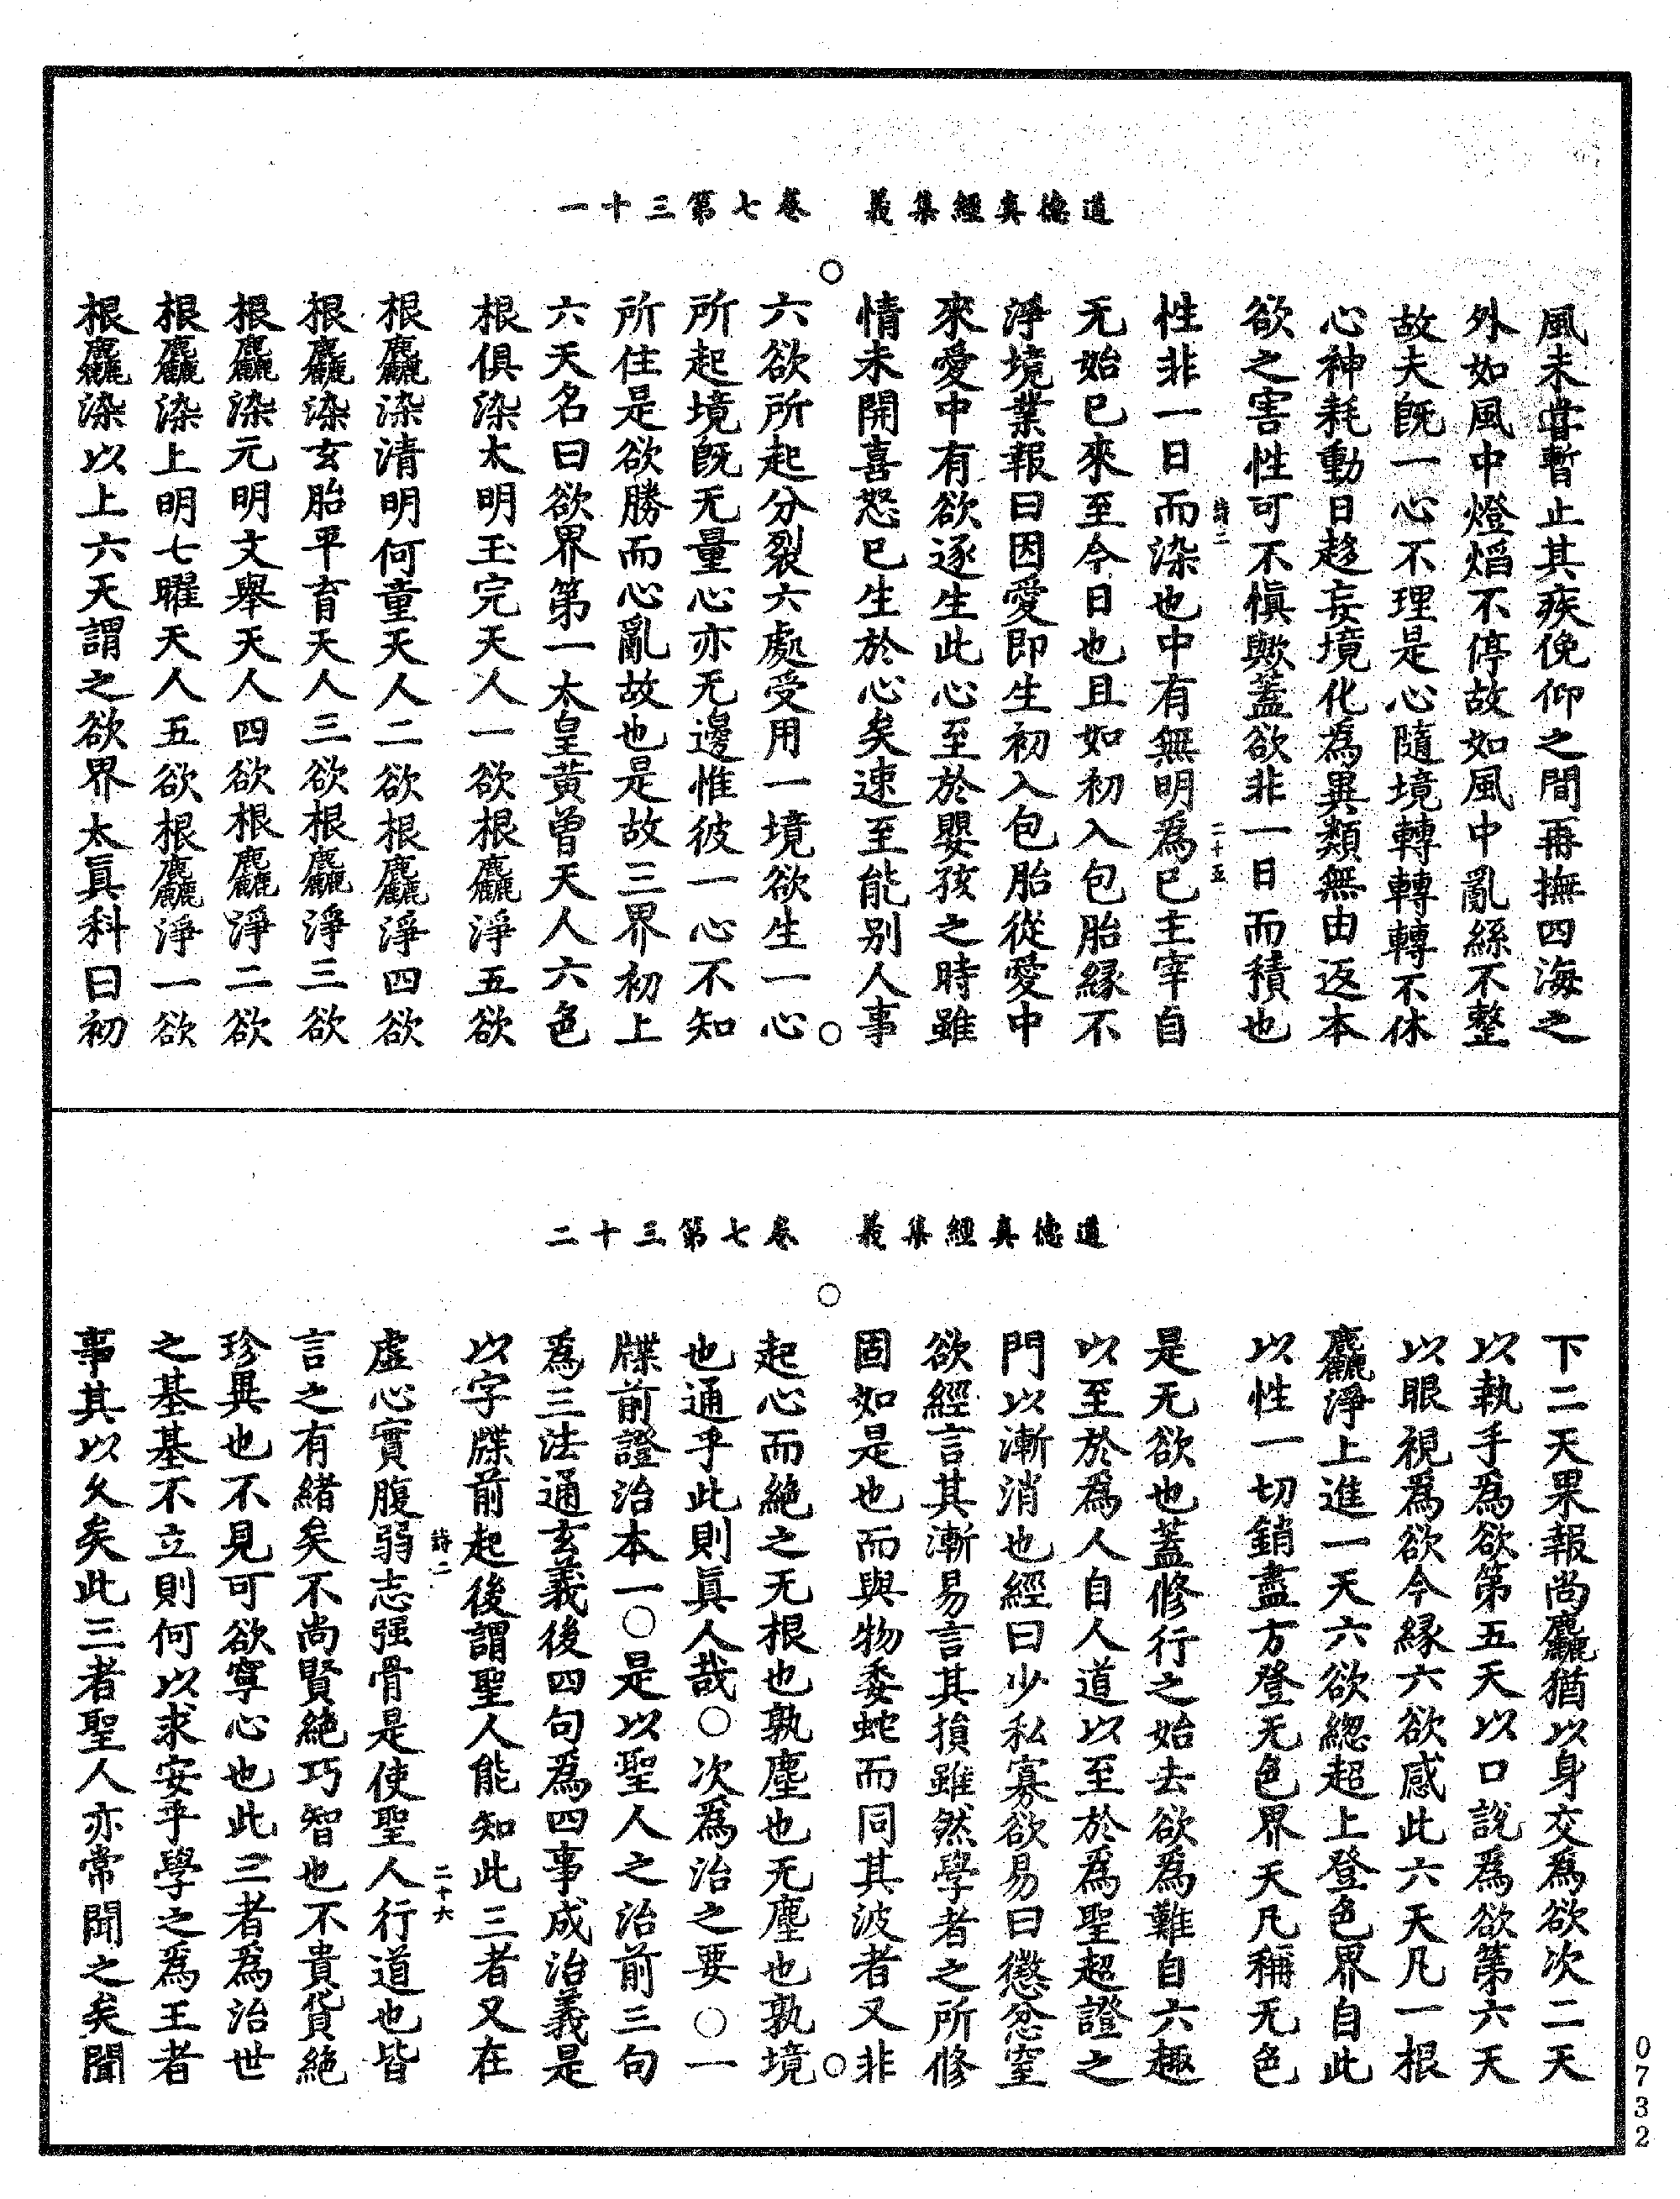 道德真經集義　卷七第三十一
風未嘗暫止其疾俛仰之間再撫四海之
外如風中燈熖不停故如風中亂絲不整
故夫旣一心不理是心隨境轉轉轉不休
心神耗動日趍妄境化為異類無由返本
欲之害性可不愼歟蓋欲非一日而積也
詩二　二十五
性非一日而染也中有無明爲已主宰自
无始已來至今日也且如初入包胎緣不
淨境業報曰因愛即生初入包胎從愛中
來愛中有欲逐生此心至於嬰孩之時雖
情未開喜怒已生於心矣速至能別人事
六欲所起分裂六處受用一境欲生一心
所起境旣无量心亦无邊惟彼一心不知
所住是欲勝而心亂故也是故三界初上
六天名曰欲界第一太皇黃曾天人六色
根俱染太明玉完天人一欲根麤淨五欲
根麤染清明何童天人二欲根麤淨四欲
根麤染玄胎平育天人三欲根麤淨三欲
根麤染元明文舉天人四欲根麤淨二欲
根麤染上明七曜天人五欲根麤淨一欲
根麤染以上六天謂之欲界太眞科曰初
道德真經集義　卷七第三十二
下二天果報尚麤猶以身交爲欲次二天
以執手爲欲第五天以口說爲欲第六天
以眼視爲欲今緣六欲感此六天凡一根
麤淨上進一天六欲總超上登色界自此
以性一切銷盡方登无色界天凡稱无色
是无欲也蓋修行之始去欲爲難自六趣
以至於爲人自人道以至於爲聖超證之
門以漸消也經曰少私寡欲易曰懲忿窒
欲經言其漸易言其損雖然學者之所修
固如是也而與物委蛇而同其波者又非
起心而絕之无根也孰塵也无塵也孰境
也通乎此則眞人哉○次爲治之要○一
牒前證治本一○是以聖人之治前三句
爲三法通玄義後四句爲四事成治義是
以字牒前起後謂聖人能知此三者又在
詩二　二十六
虛心實腹弱志强骨是使聖人行道也皆
言之有緒矣不尚賢絕巧智也不貴貨絕
珍異也不見可欲寧心也此三者爲治世
之基基不立則何以求安乎學之爲王者
事其以久矣此三者聖人亦常聞之矣聞
0732